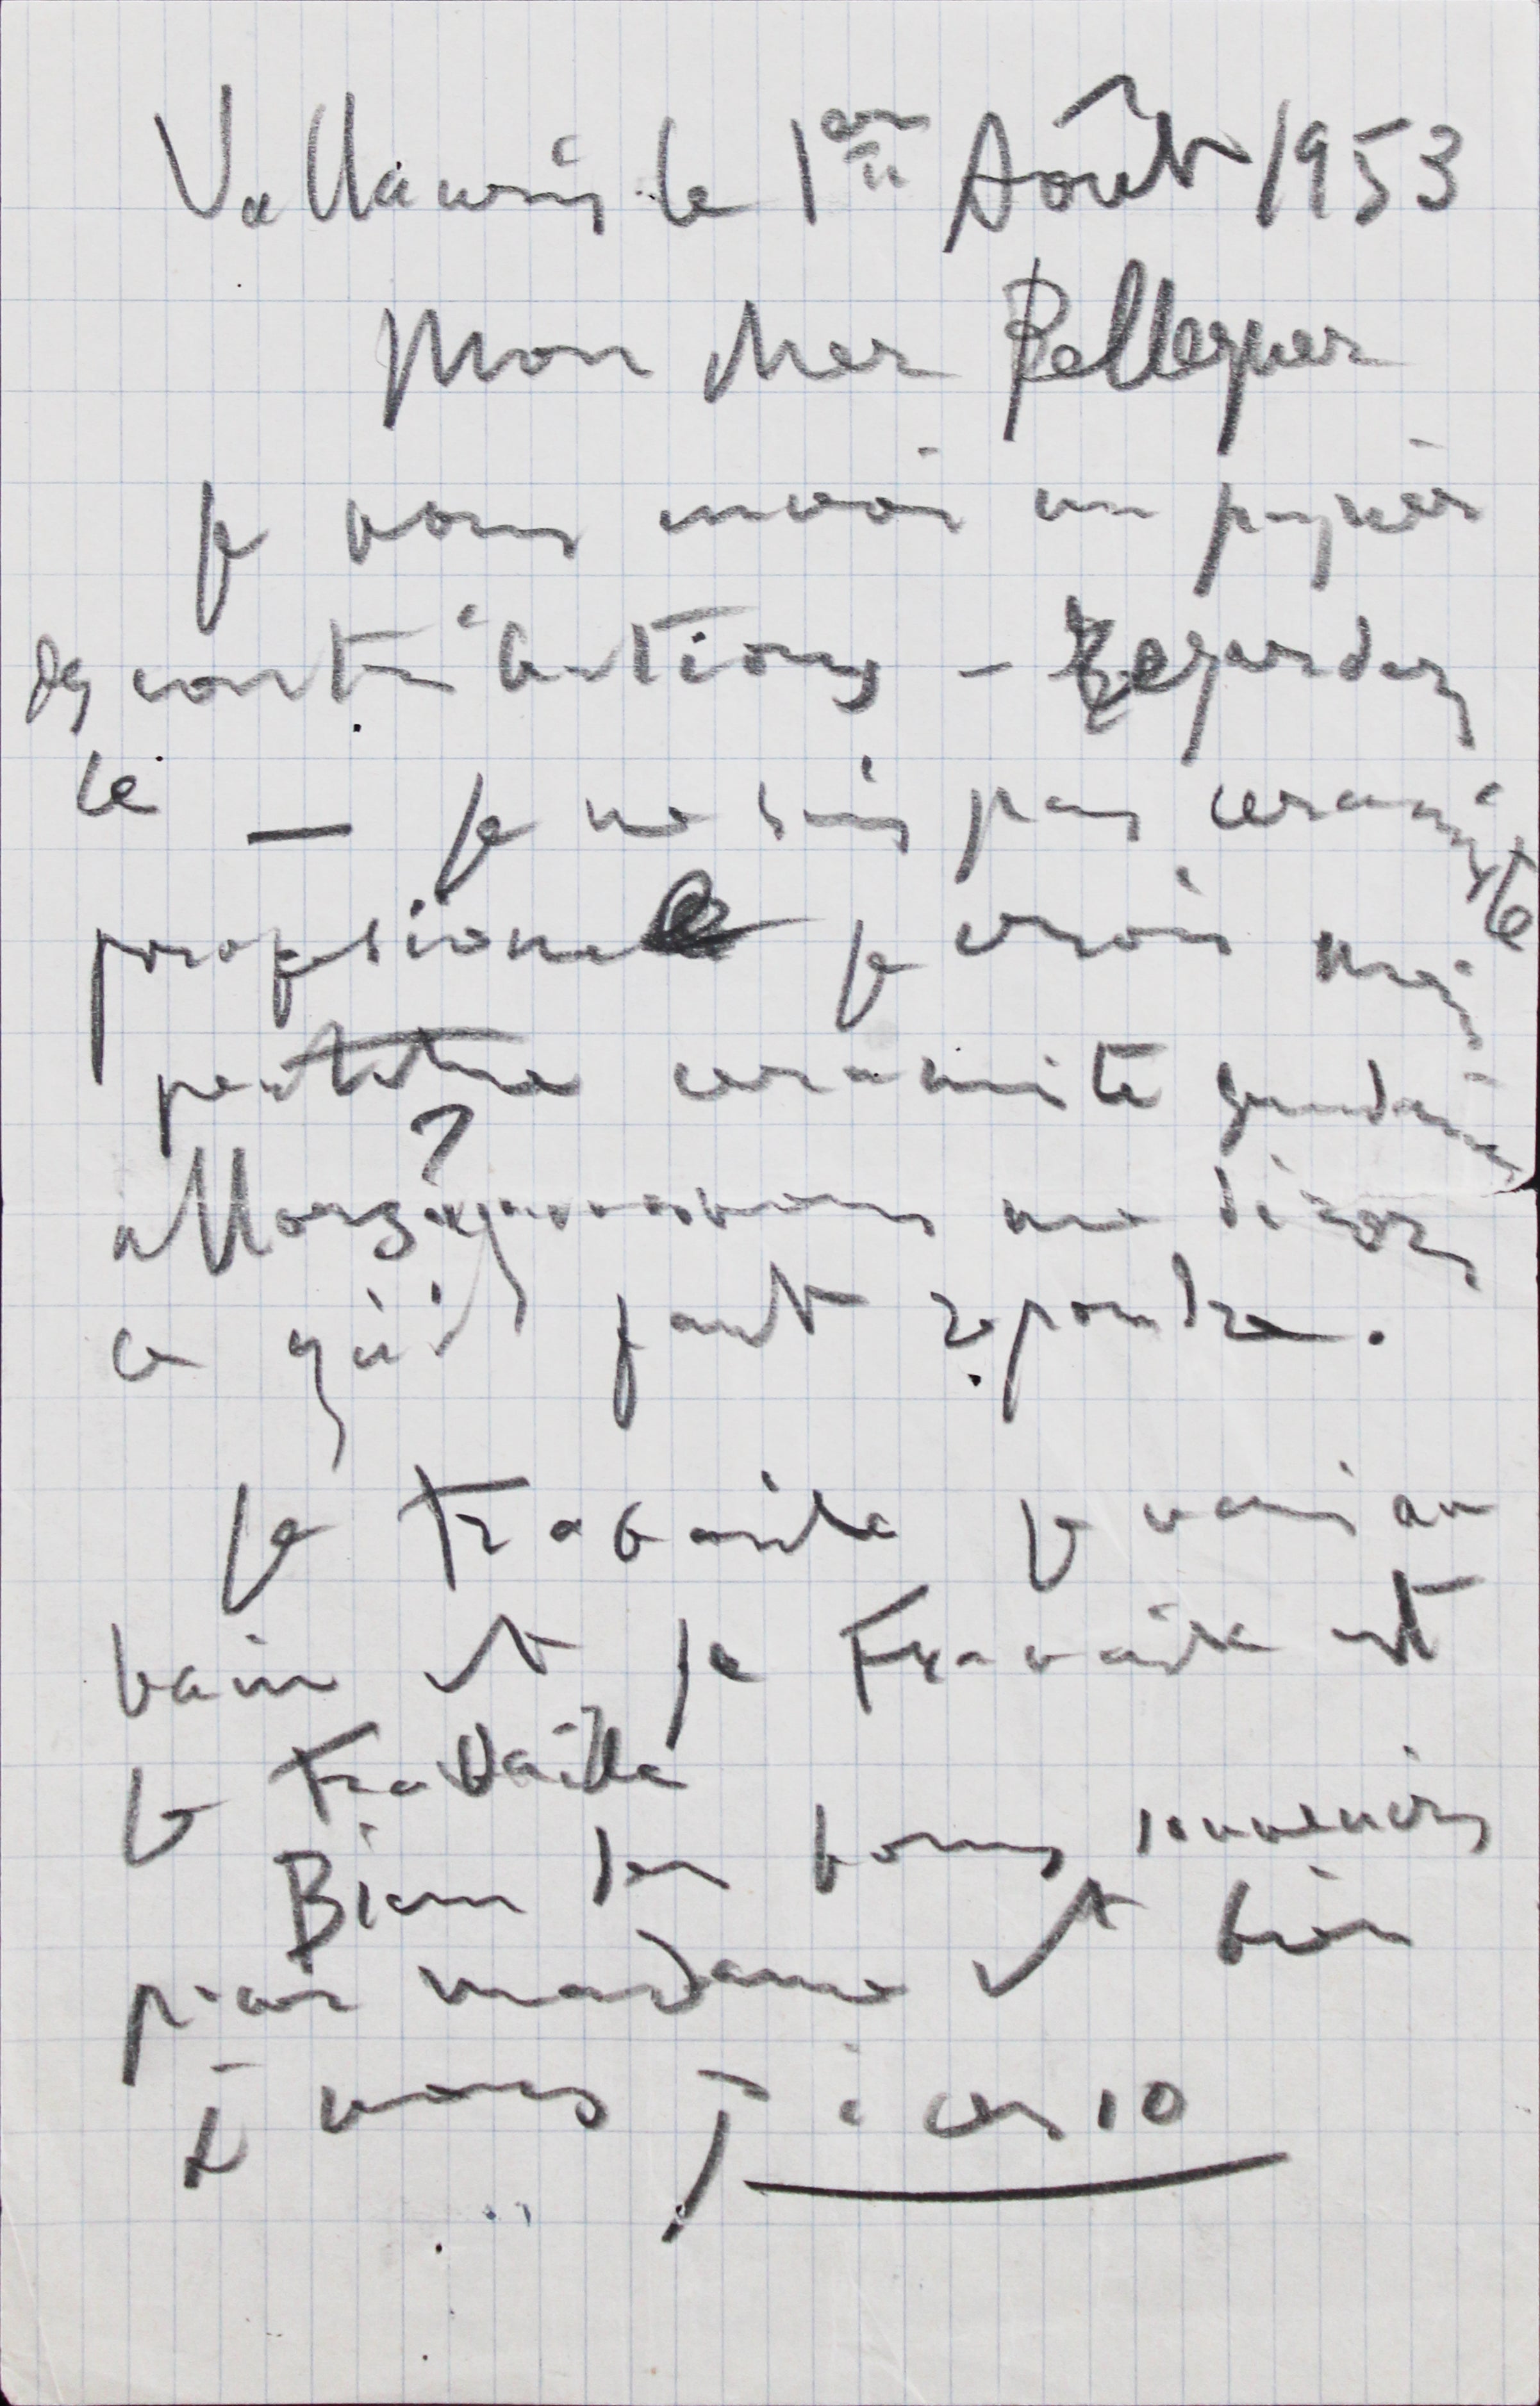 Vallauris le 1er Août 1953
Mon cher Pellequer
je vous envoi un papier
des contributions – Regardez
le — je ne suis pas ceramiste
profesionel je crois
peutetre ceramiste
vous me direz
ce qu'il faut repondre.
je travaille je vais au
bain et je travaille et
je travaille
Bien des bons souvenirs
pour madame et bien
à vous Picasso